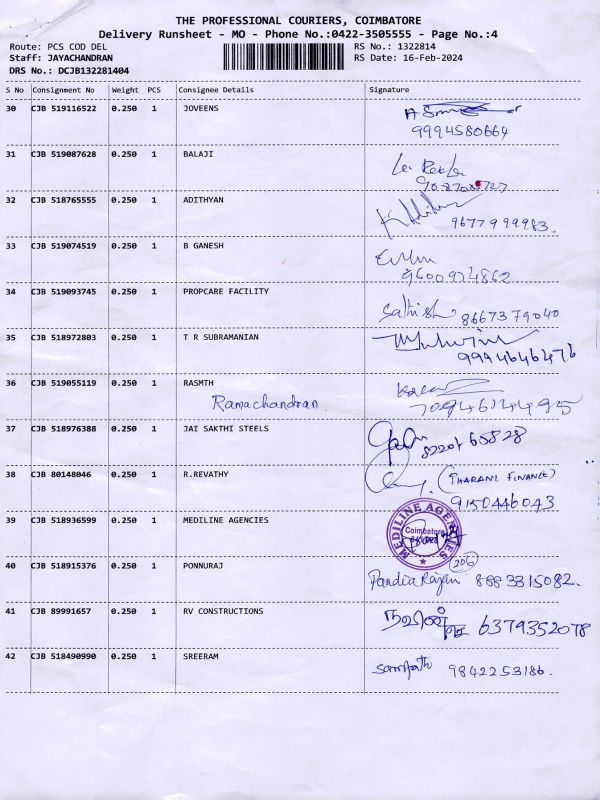 THE PROFESSIONAL COURIERS, COIMBATORE
Delivery Runsheet - MO - Phone No.:0422-3505555 - Page No.:4
Route: PCS COD DEL RS No.: 1322814
Staff: JAYACHANDRAN RS Date: 16-Feb-2024
DRS No.: DCJB132281404
S No Consignment No Weight PCS Consignee Details Signature
30 CJB 519116522 0.250 1 JOVEENS
9994580664
31 CJB 519087628 0.250 1 BALAJI
32 CJB 518765555 0.250 1 ADITHYAN
9677999983.
33 CJB 519074519 0.250 1 B GANESH
9600974862
34 CJB 519093745 0.250 1 PROPCARE FACILITY
Sathish 8667379040
35 CJB 518972803 0.250 1 T R SUBRAMANIAN
9994646476
36 CJB 519055119 0.250 1 RASMTH
Ramachandran
37 CJB 518976388 0.250 1 JAI SAKTHI STEELS
8220165828
38 CJB 80148046 0.250 1 R.REVATHY
(THARANI FINANCE)
9150446043
39 CJB 518936599 0.250 1 MEDILINE AGENCIES
MEDILINE AGENCIES
Coimbatore
40 CJB 518915376 0.250 1 PONNURAJ
206
Pandia Rajan 8883315082.
41 CJB 89991657 0.250 1 RV CONSTRUCTIONS
நவின் 6379352078
42 CJB 518490990 0.250 1 SREERAM
Sampath 9842253186.